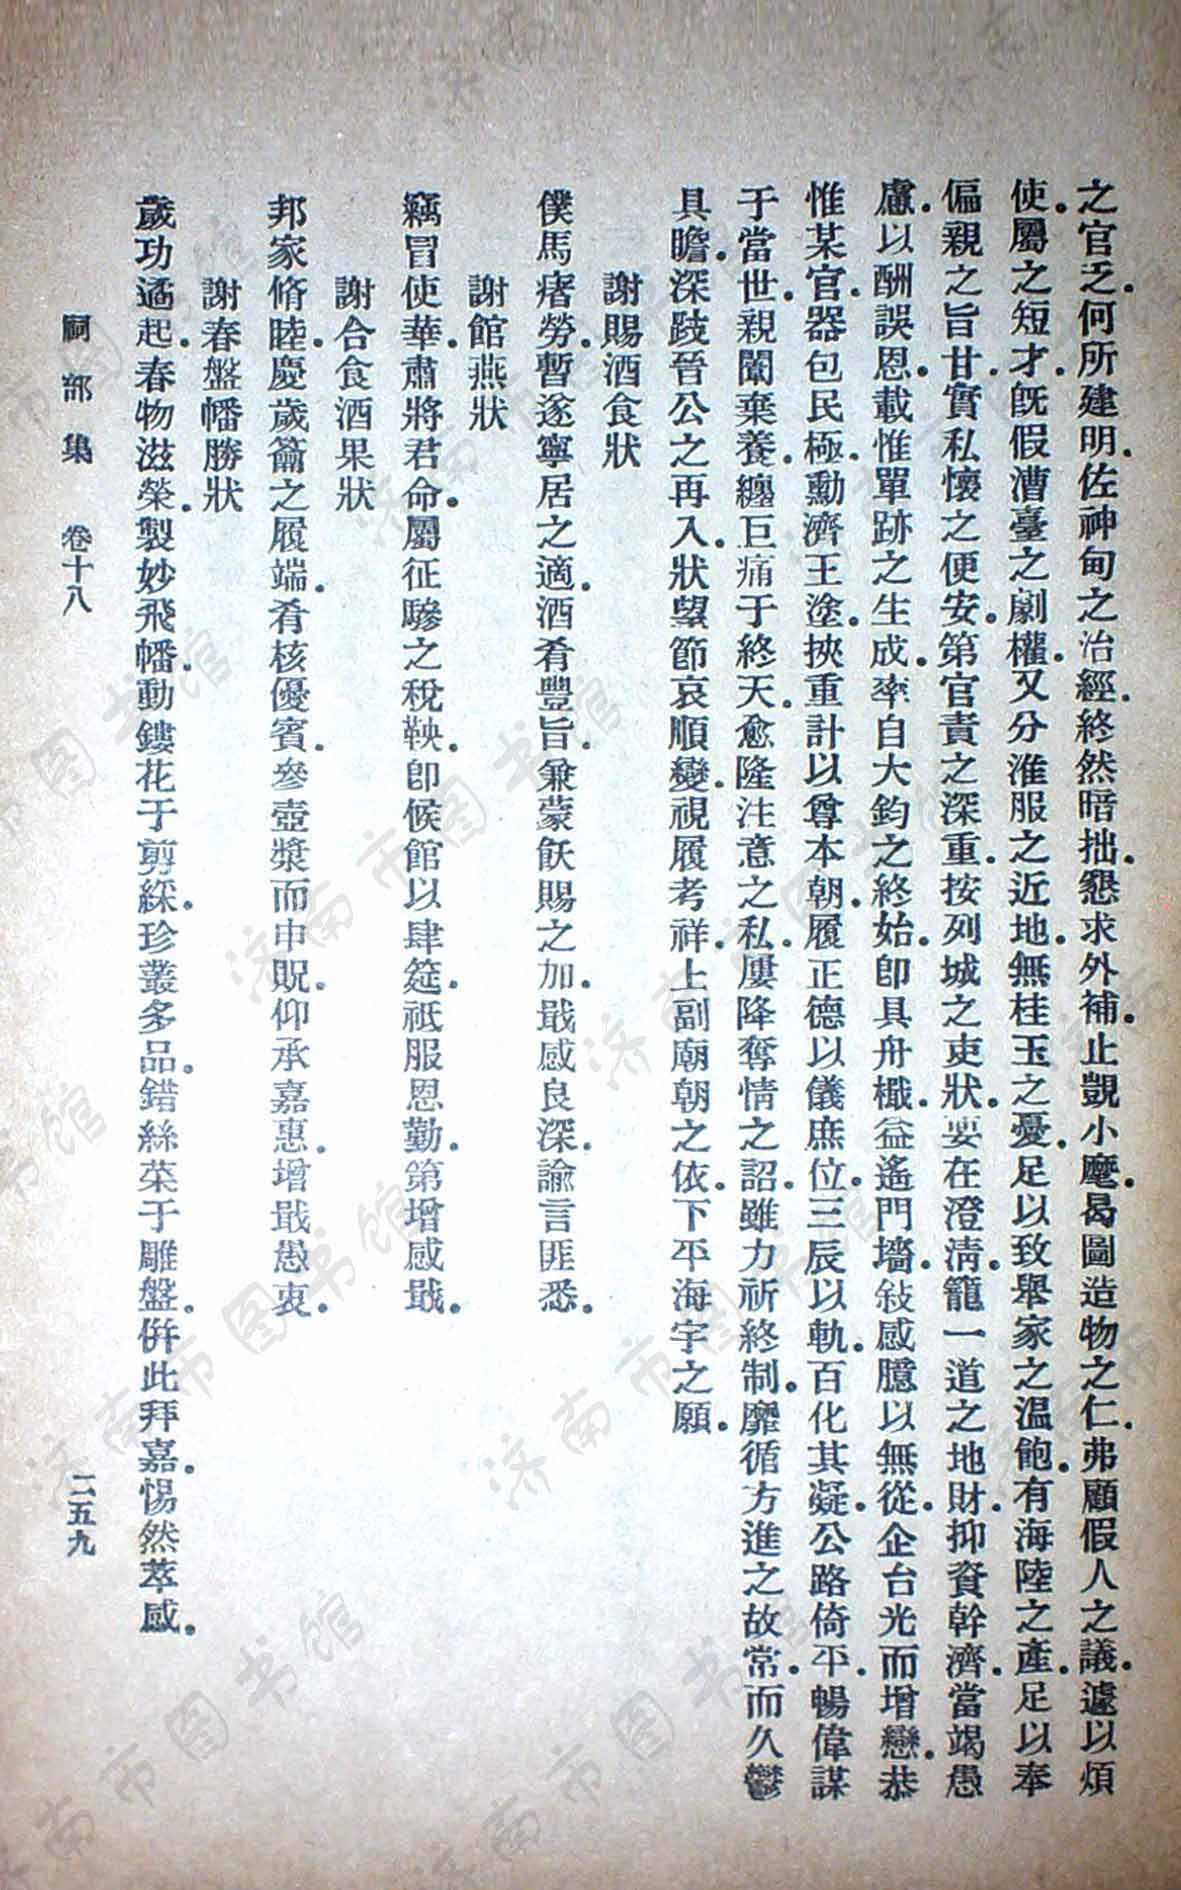 之官乏何所建明佐神甸之治經終然暗拙懇求外補止覬小麾曷圖造物之仁弗顧假人之議遽以煩
使屬之短才旣假漕臺之劇權又分淮服之近地無桂玉之憂足以致舉家之溫飽有海陸之產足以奉
偏親之旨甘實私懷之便安第官責之深重按列城之吏狀要在澄淸籠一道之地財抑資幹濟當竭愚
慮以酬誤恩載惟單跡之生成率自大鈞之終始卽具舟檝益遙門墻敍感臆以無從企台光而增戀恭
惟某官器包民極勳濟王塗挾重計以尊本朝履正德以儀庶位三辰以軌百化其凝公路倚平暢偉謀
于當世親闈棄養纏巨痛于終天愈隆注意之私屢降奪情之詔雖力祈終制靡循方進之故常而久鬱
具瞻深跂晉公之再入狀望節哀順變視履考祥上副廟朝之依下平海宇之願
謝賜酒食狀
僕馬瘏勞暫遂寧居之適酒肴豐旨兼蒙飫賜之加戢感良深諭言匪悉
謝館燕狀
竊冒使華肅將君命屬征驂之稅鞅卽候館以肆筵祗服恩勤第增感戢
謝合食酒果狀
邦家脩睦慶歲籥之履端肴核優賓參壺漿而申貺仰承嘉惠增戢愚衷
謝春盤幡勝狀
歲功遹起春物滋榮製妙飛幡動鏤花于剪綵珍叢多品錯絲菜于雕盤倂此拜嘉惕然萃感
祠部集 卷十八 二五九
济南市图书馆